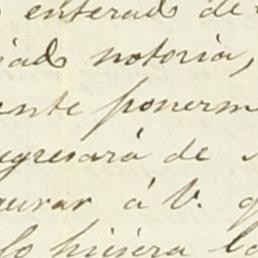 enterad de
iad notoria,
ente ponerm
egresará de
urar á V. q
lo hiciera la